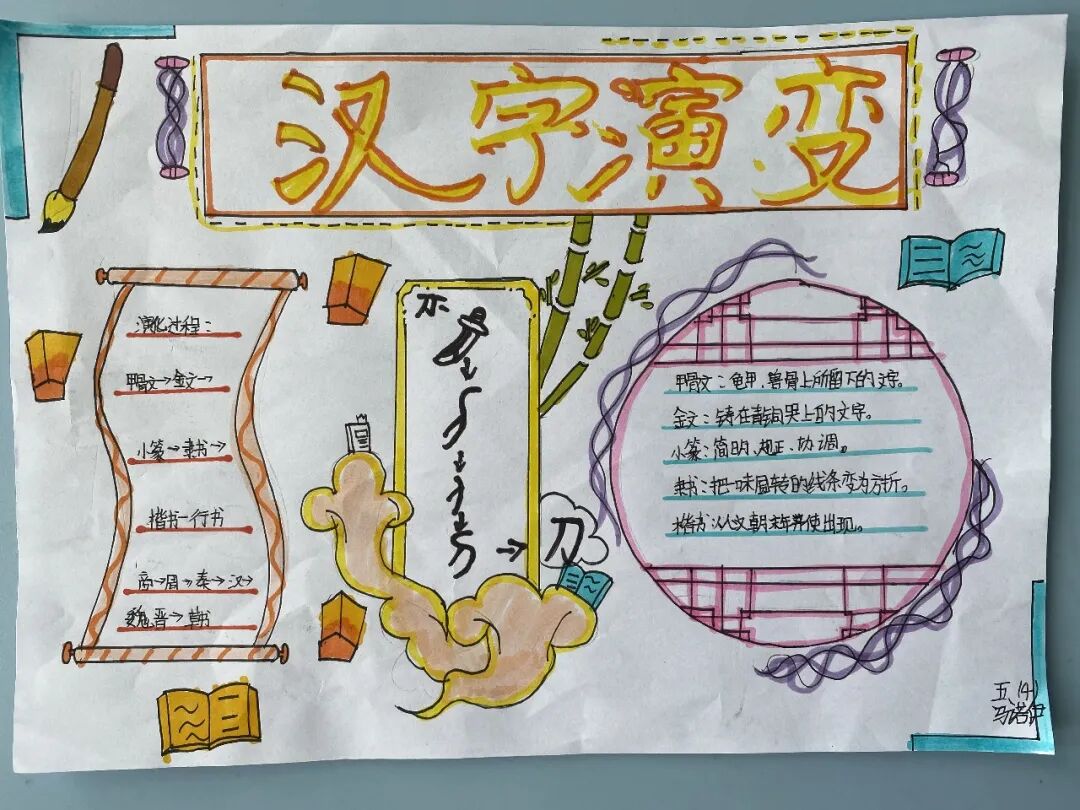 汉字演变
演化过程：
甲骨文→金文→
小篆→隶书→
楷书-行书
商→周→秦→汉→
魏晋→草书
刀
甲骨文：龟甲、兽骨上所留下的文字。
金文：铸在青铜器上的文字。
小篆：简明、规正、协调。
隶书：把一味圆转的线条变为方折。
楷书：从汉朝末年开使出现。
五、(4)
马诺伊